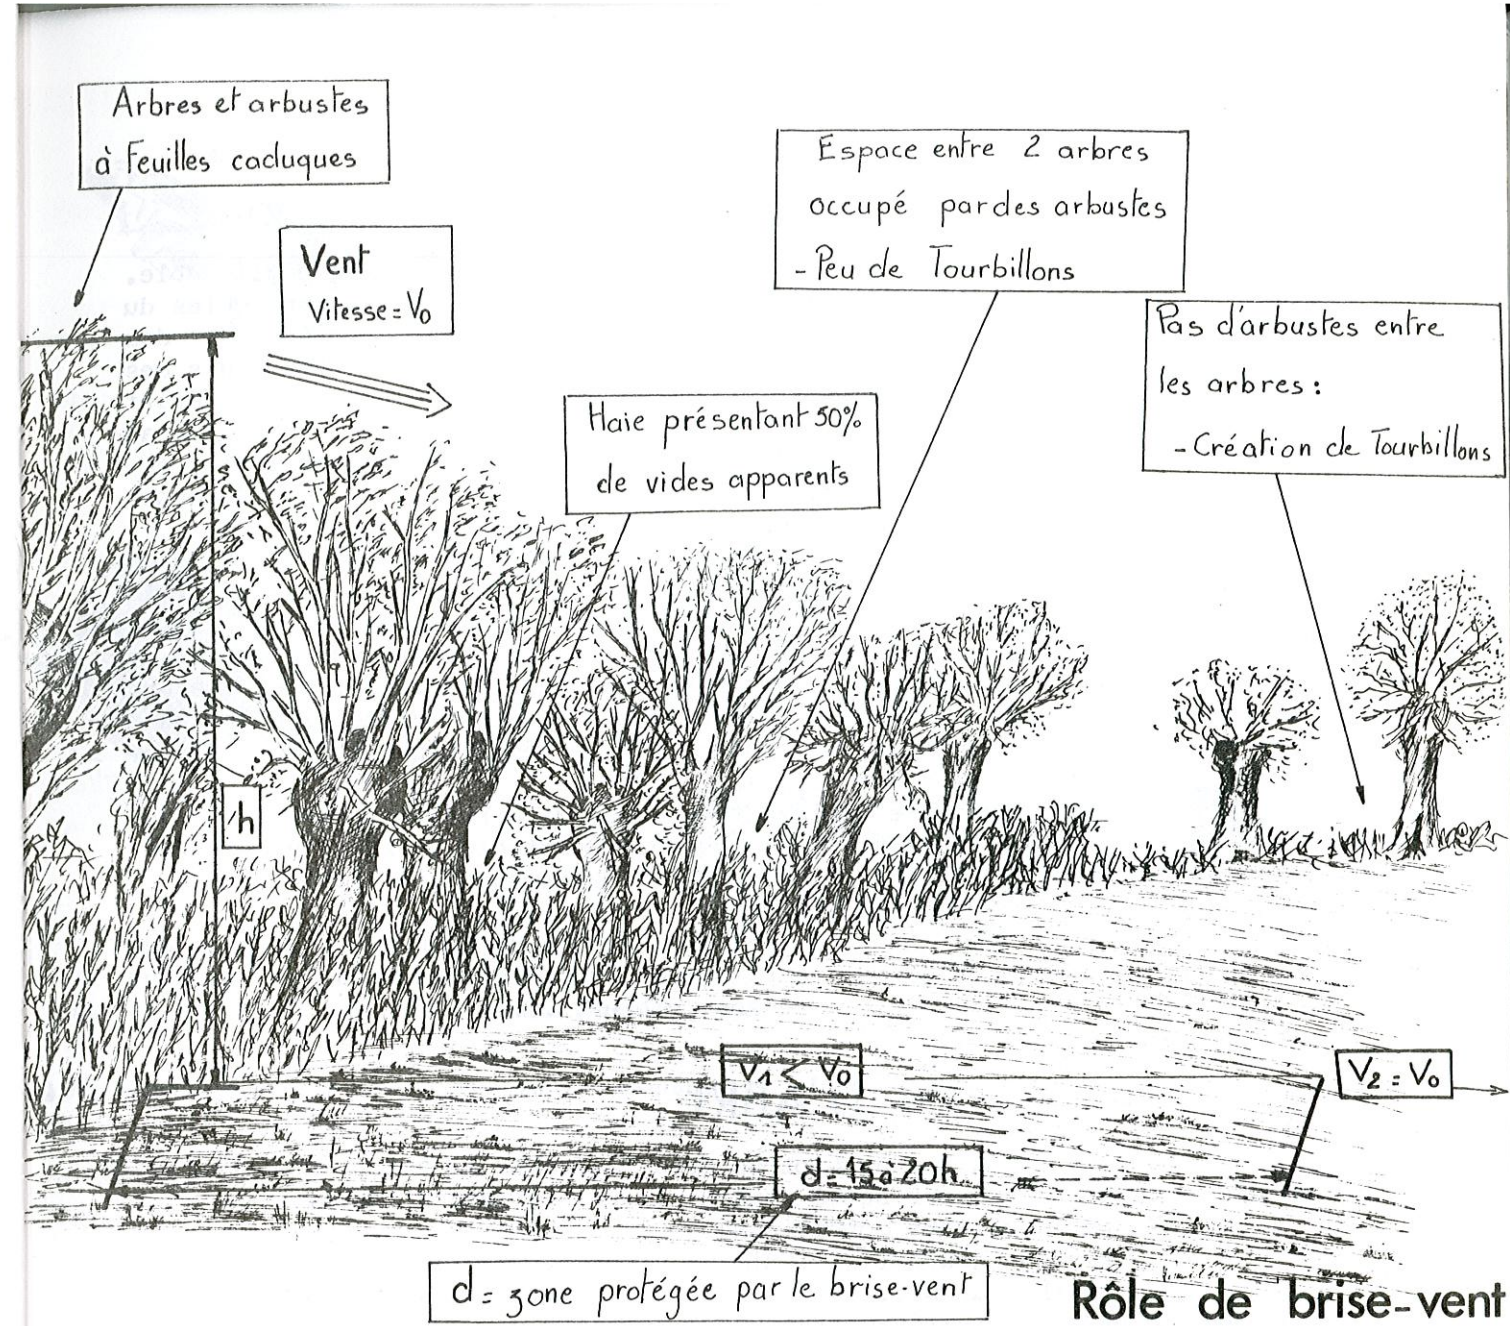 Arbres et arbustes
à Feuilles caduques
Vent
Vitesse = V₀
Espace entre 2 arbres
occupé par des arbustes
- Peu de Tourbillons
Pas d'arbustes entre
les arbres :
- Création de Tourbillons
Haie présentant 50%
de vides apparents
h
V₁ < V₀
V₂ = V₀
d = 15 à 20h
d = zone protégée par le brise-vent
Rôle de brise-vent